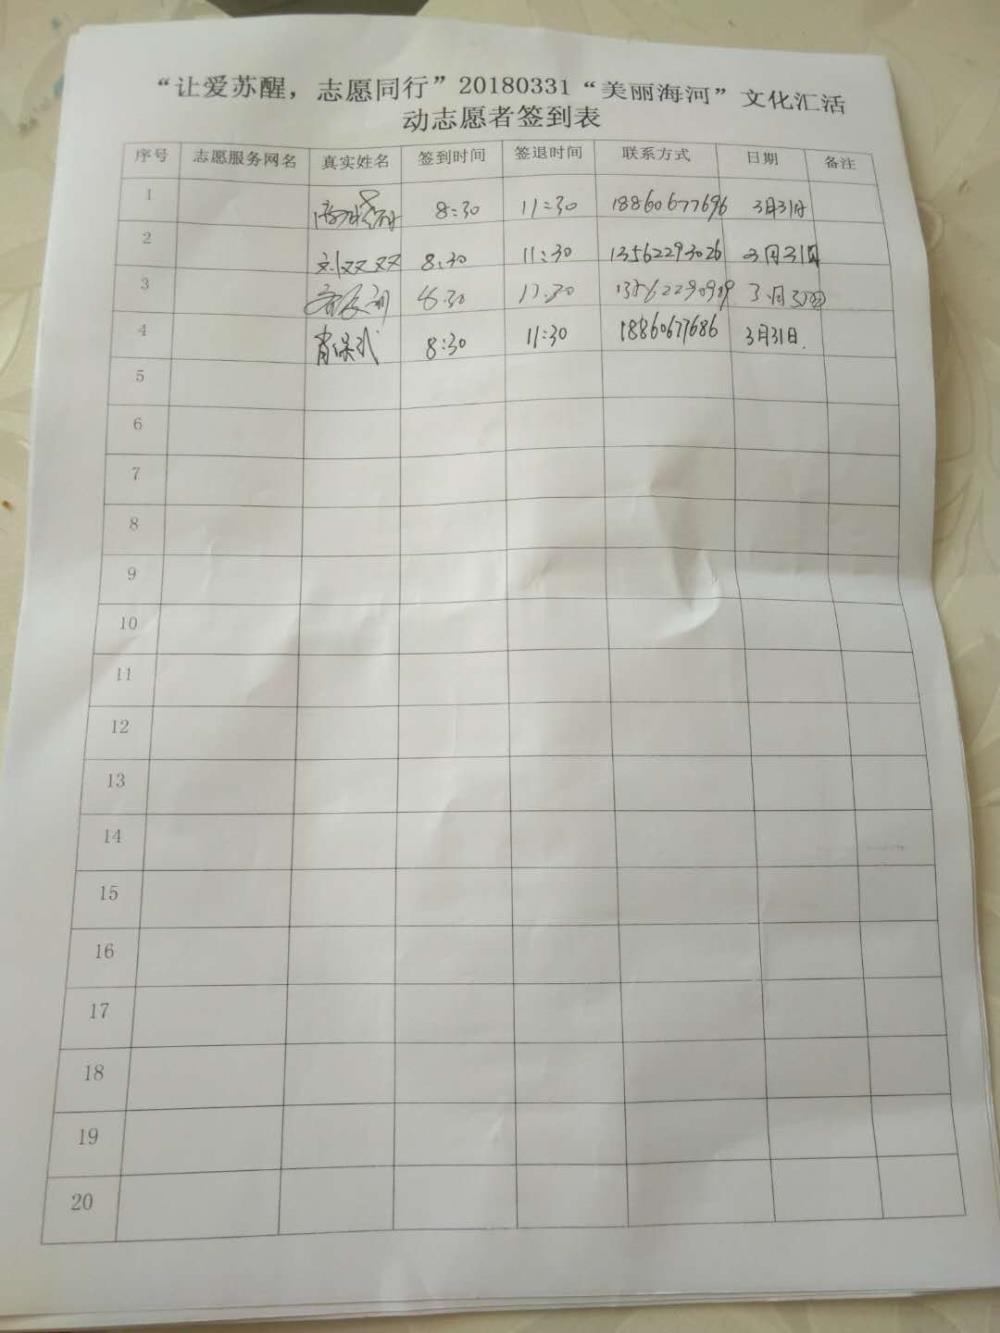 “让爱苏醒，志愿同行”20180331“美丽海河”文化汇活
动志愿者签到表
序号 志愿服务网名 真实姓名 签到时间 签退时间 联系方式 日期 备注
1 8:30 11:30 18860677696 3月31日
2 刘双双 8:30 11:30 13562293026 3月31日
3 8:30 11:30 3月31日
4 肖保成 8:30 11:30 18860677686 3月31日.
5
6
7
8
9
10
11
12
13
14
15
16
17
18
19
20